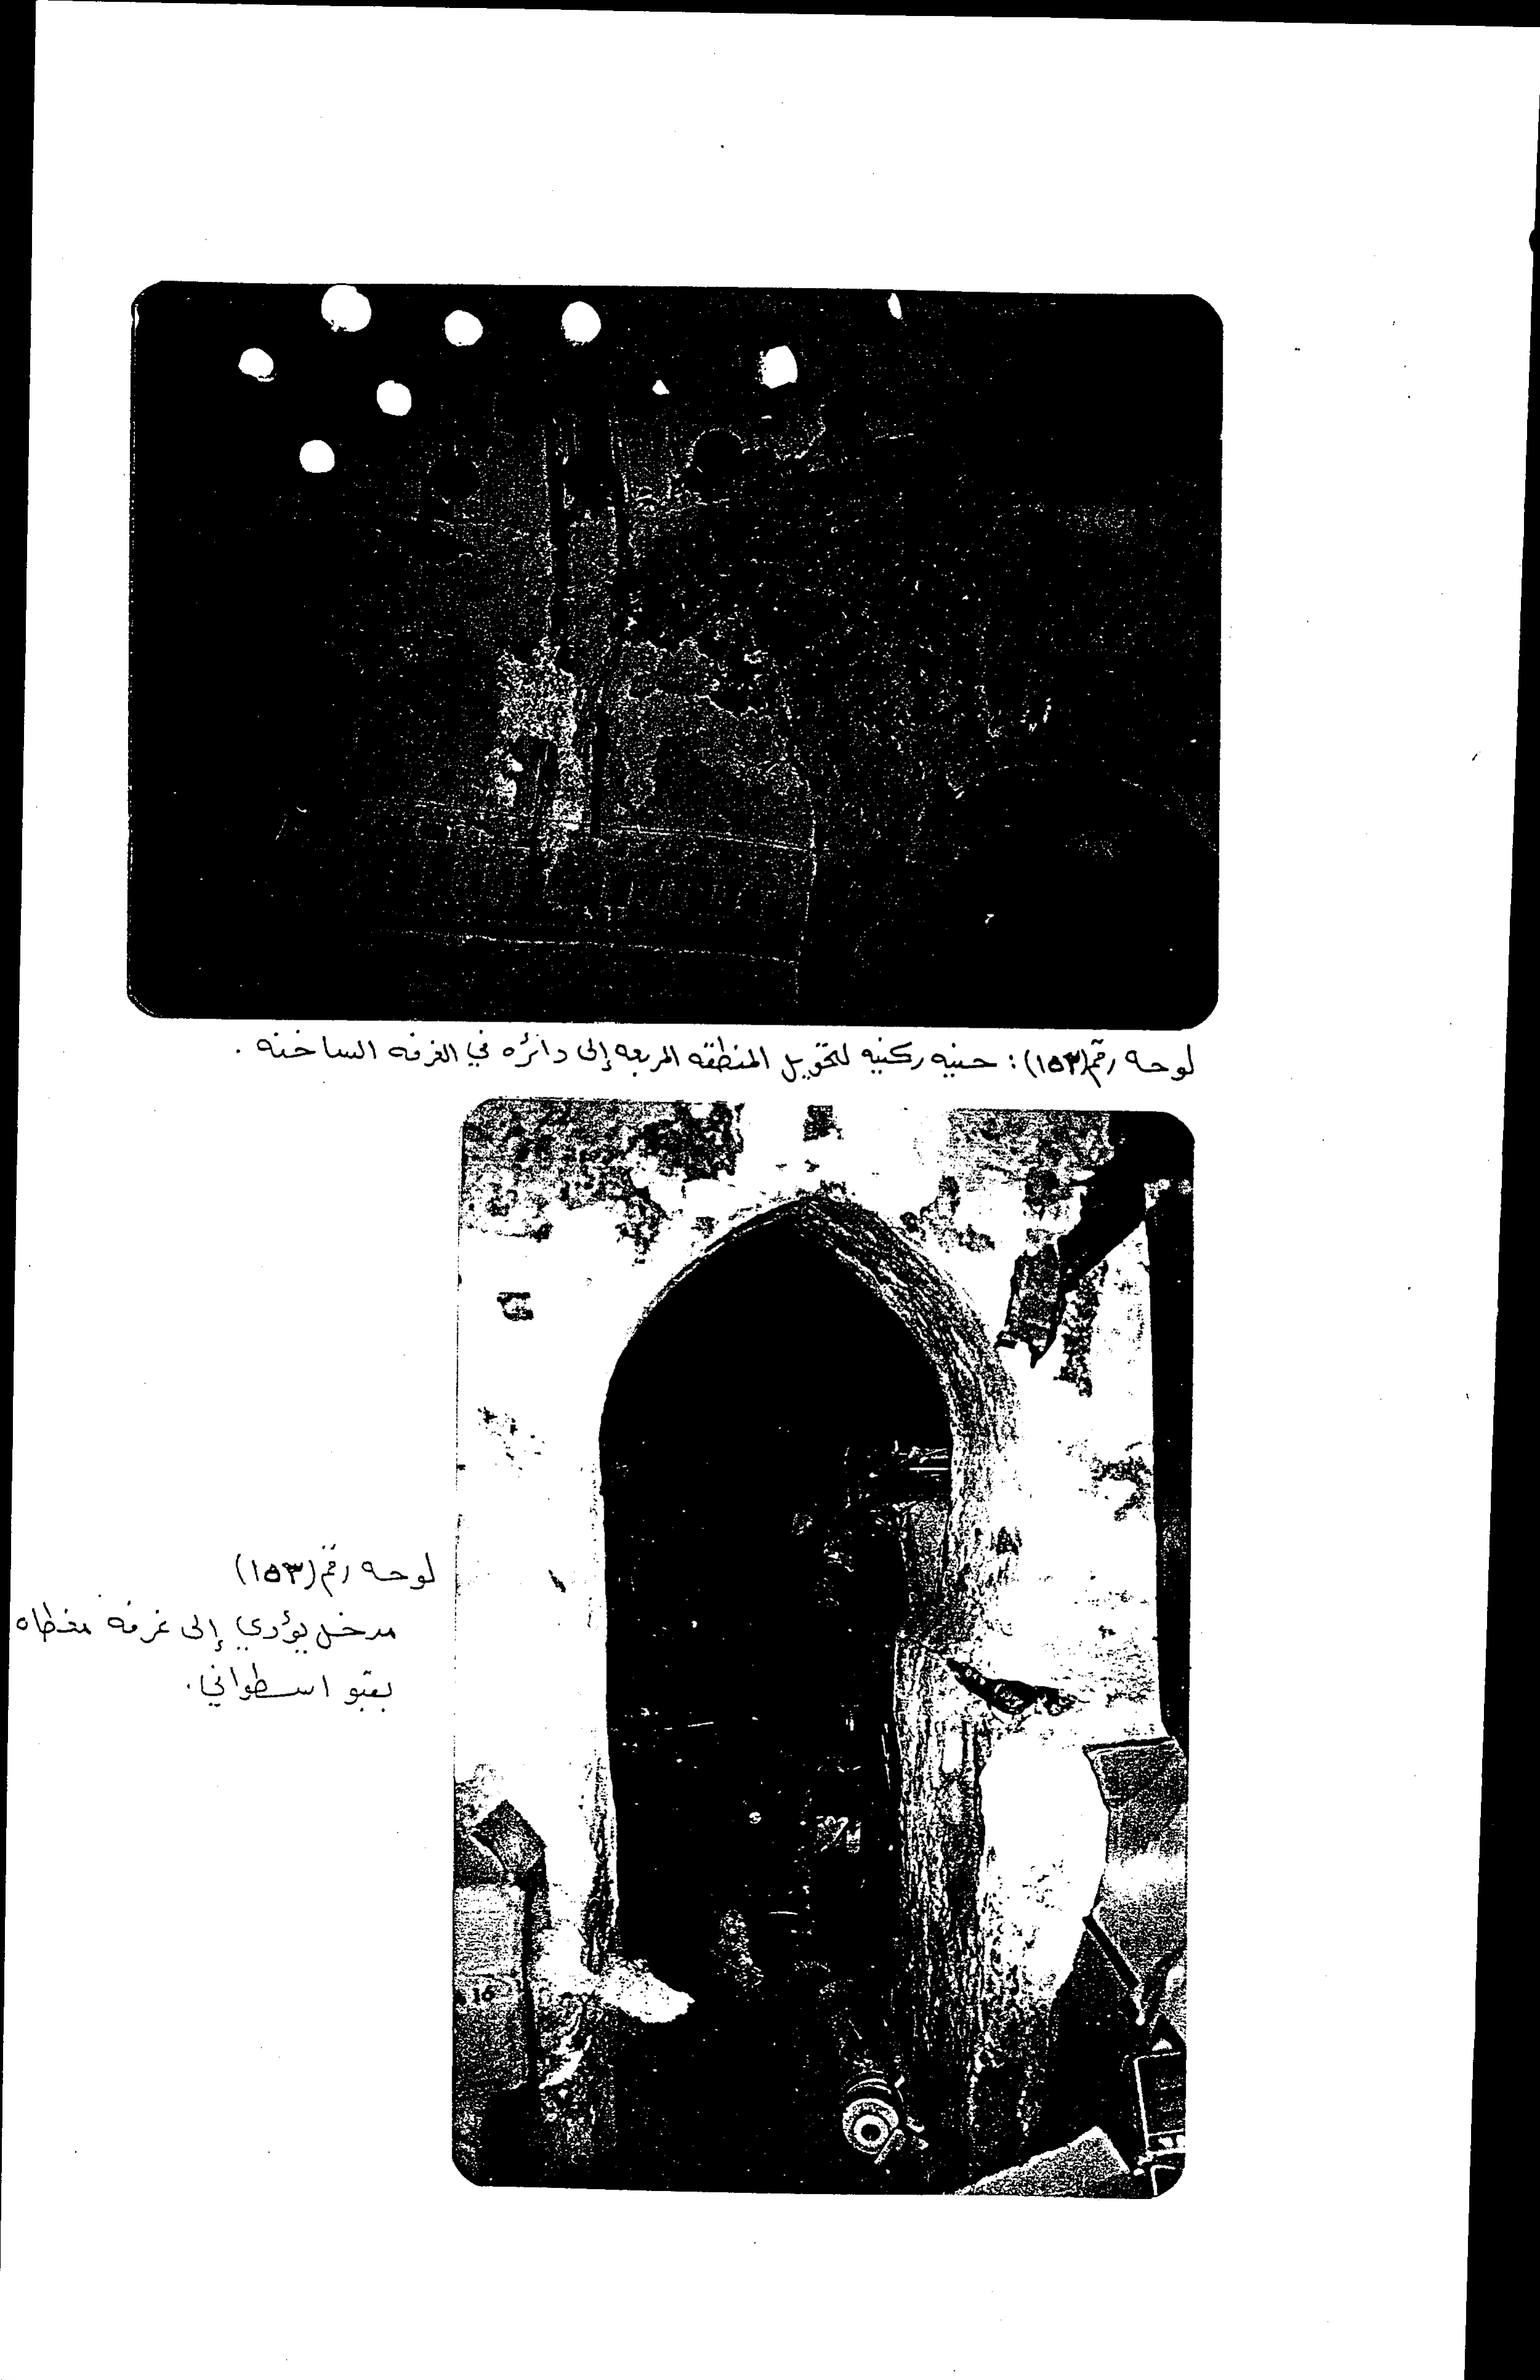 لوحه رقم (١٥٣) : حنيه ركنيه لتحويل المنطقه المربعه إلى دائره في الغرفه الساخنه .
لوحه رقم (١٥٣)
مدخل يؤدي إلى غرفه مغطاه
بقبو اسطواني.
16